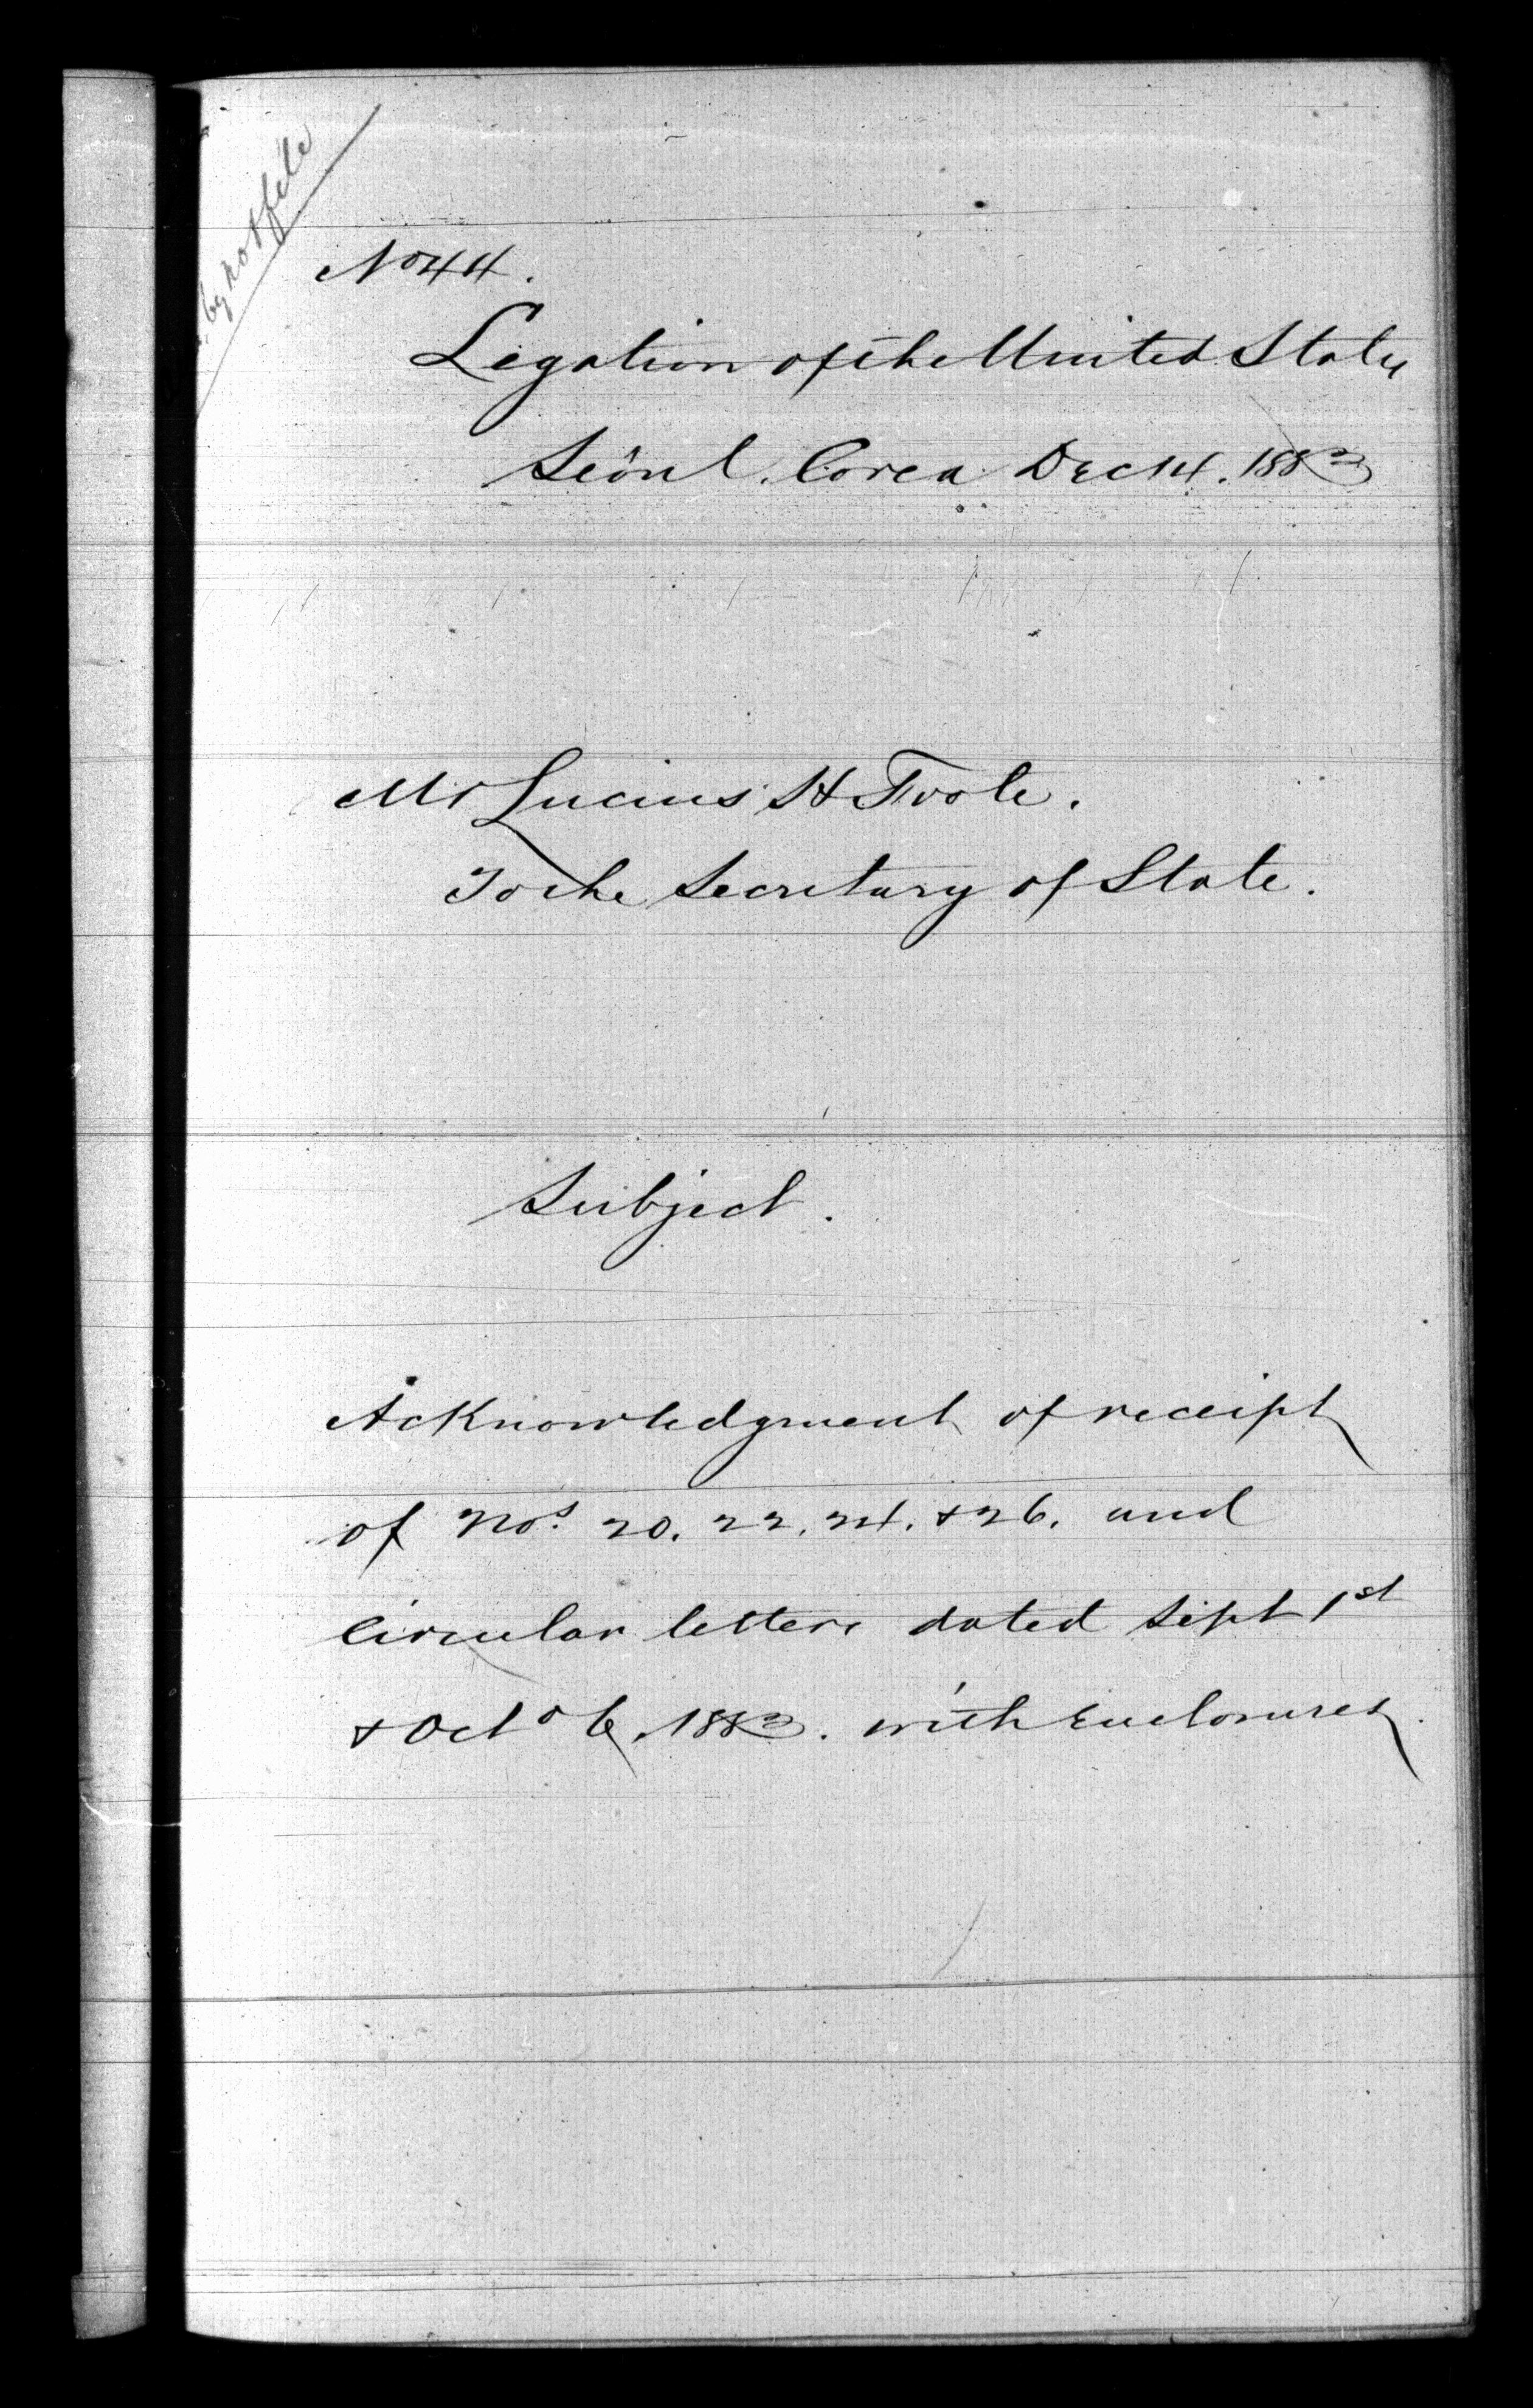 No 44.
Legation of the United States
Seoul, Corea Dec 14. 1883
Mr Lucius H Foote.
To the Secretary of State.
Subject.
Acknowledgment of receipt
of Nos. 20. 22. 24. & 26. and
circular letters dated Sept 1st
& Oct 6. 1883. with Enclosures.